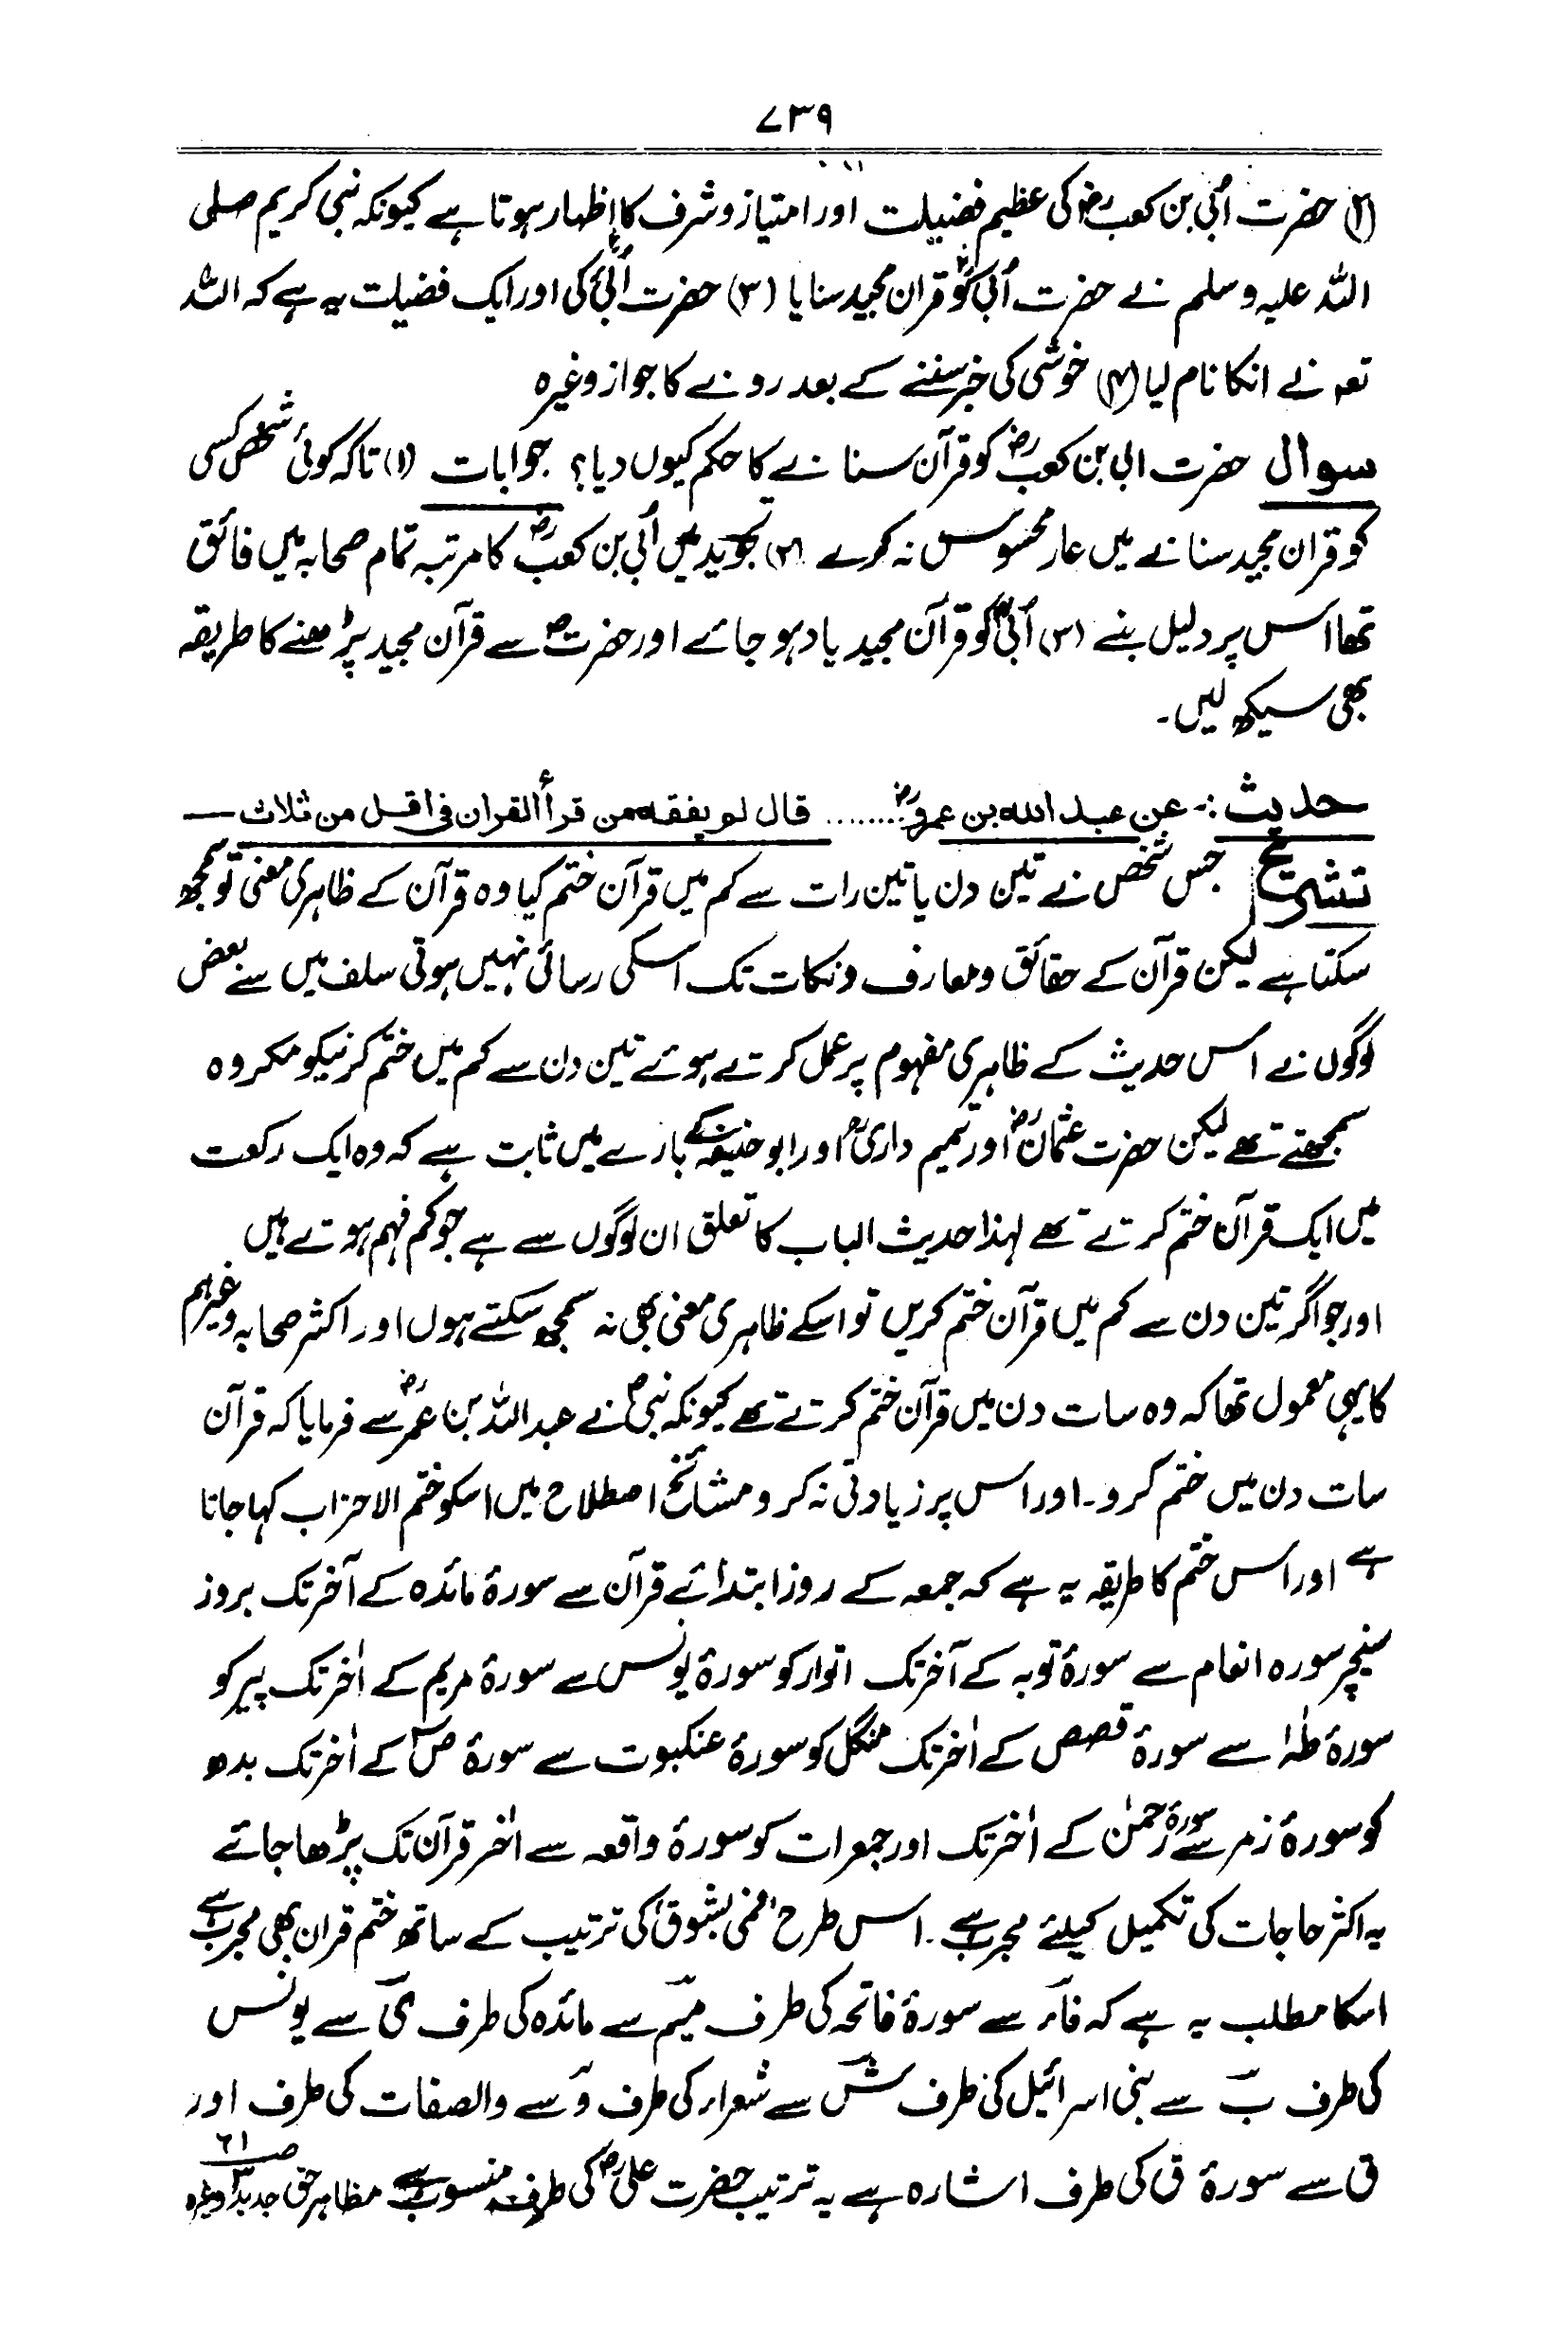 ۷۳۹
(۲) حضرت اُبی بن کعبؓ کی عظیم فضیلت اور امتیاز و شرف کا اظہار ہوتا ہے کیونکہ نبی کریم صلی
اللہ علیہ وسلم نے حضرت اُبیؓ کو قران مجید سنایا (۳) حضرت اُبیؓ کی اور ایک فضیلت یہ ہے کہ اللہ
تعہ نے انکا نام لیا (۴) خوشی کی خبر سننے کے بعد رونے کا جواز وغیرہ
سوال حضرت ابی بن کعبؓ کو قرآن سنانے کا حکم کیوں دیا؟ جوابات (۱) تاکہ کوئی شخص کسی
کو قران مجید سنانے میں عار محسوس نہ کرے (۲) تجوید میں اُبی بن کعبؓ کا مرتبہ تمام صحابہ میں فائق
تھا اس پر دلیل بنے (۳) اُبیؓ کو قرآن مجید یاد ہو جائے اور حضرتؐ سے قرآن مجید پڑھنے کا طریقہ
بھی سیکھ لیں۔
حدیث :- عن عبد الله بن عمروؓ ........ قال لم یفقه من قرأ القران فی اقل من ثلاث —
تشریح جس شخص نے تین دن یا تین رات سے کم میں قرآن ختم کیا وہ قرآن کے ظاہری معنی تو سمجھ
سکتا ہے لیکن قرآن کے حقائق و معارف و نکات تک اسکی رسائی نہیں ہوتی سلف میں سے بعض
لوگوں نے اس حدیث کے ظاہری مفہوم پر عمل کرتے ہوئے تین دن سے کم میں ختم کرنیکو مکروہ
سمجھتے تھے لیکن حضرت عثمانؓ اور تمیم داریؓ اور ابو حنیفہؒ کے بارے میں ثابت ہے کہ وہ ایک رکعت
میں ایک قرآن ختم کرتے تھے لہذا حدیث الباب کا تعلق ان لوگوں سے ہے جو کم فہم ہوتے ہیں
اور جو اگر تین دن سے کم میں قرآن ختم کریں تو اسکے ظاہری معنی بھی نہ سمجھ سکتے ہوں اور اکثر صحابہ وغیرہم
کا یہی معمول تھا کہ وہ سات دن میں قرآن ختم کرتے تھے کیونکہ نبیؐ نے عبد اللہ بن عمرؓ سے فرمایا کہ قرآن
سات دن میں ختم کرو۔ اور اس پر زیادتی نہ کرو مشائخ اصطلاح میں اسکو ختم الاحزاب کہا جاتا
ہے اور اس ختم کا طریقہ یہ ہے کہ جمعہ کے روز ابتدائے قرآن سے سورۂ مائدہ کے آخر تک بروز
سنیچر سورہ انعام سے سورۂ توبہ کے آخر تک اتوار کو سورۂ یونس سے سورۂ مریم کے اٰخر تک پیر کو
سورۂ طہٰ سے سورۂ قصص کے اٰخر تک منگل کو سورۂ عنکبوت سے سورۂ صؔ کے اٰخر تک بدھ
کو سورۂ زمر سے سورۂ رحمٰن کے اٰخر تک اور جمعرات کو سورۂ واقعہ سے اٰخر قرآن تک پڑھا جائے
یہ اکثر حاجات کی تکمیل کیلئے مجرب ہے۔ اس طرح "فمی بشوق" کی ترتیب کے ساتھ ختم قران بھی مجرب ہے
اسکا مطلب یہ ہے کہ فاء سے سورۂ فاتحہ کی طرف میم سے مائدہ کی طرف ی سے یونس
کی طرف ب سے بنی اسرائیل کی طرف ش سے شعراء کی طرف و سے والصفات کی طرف اور
ق سے سورۂ ق کی طرف اشارہ ہے یہ ترتیب حضرت علیؓ کی طرف منسوب ہے مظاہر حق جدید ص۶۱ وغیرہ